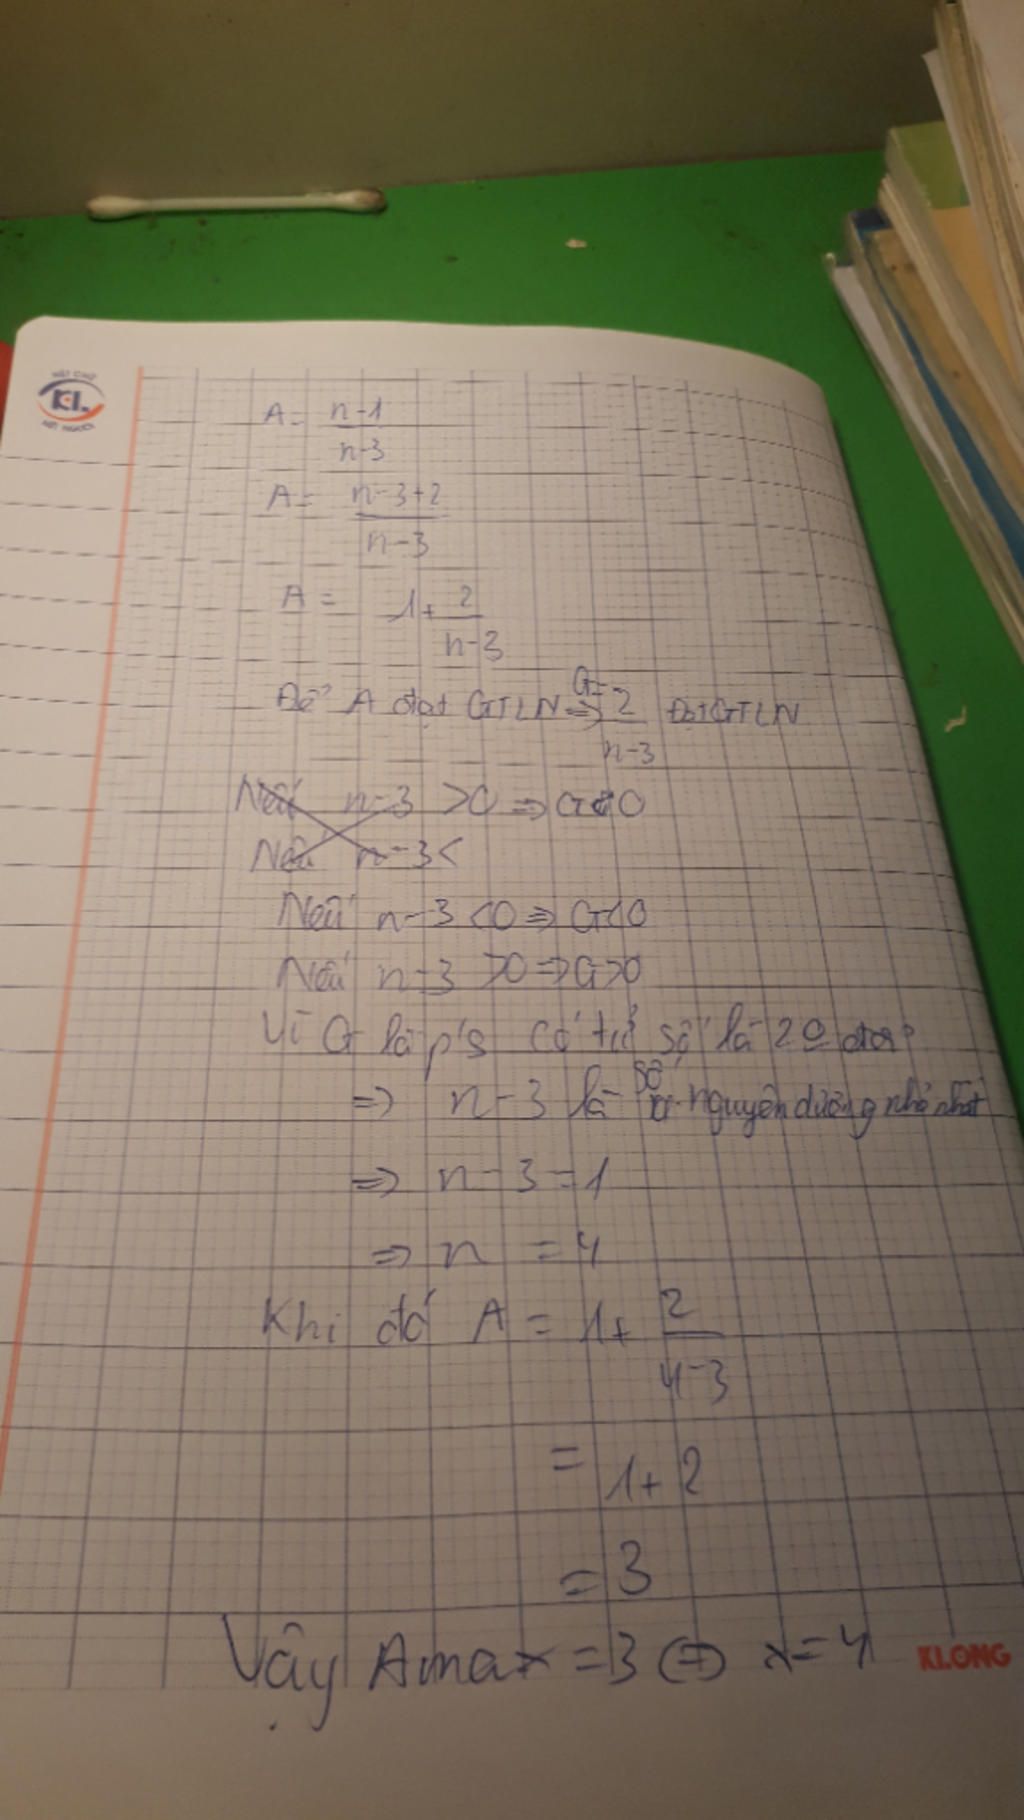 NÉT CHỮ
KL
NẾT NGƯỜI
A = n-1
n-3
A = n-3+2
n-3
A = 1+ 2
n-3
Để A đạt GTLN => G= 2 Đạt GTLN
n-3
Nếu n-3 >0 => G<0
Nếu n-3<
Nếu n-3 <0 => G<0
Nếu n-3 >0 => G>0
Vì G là p/s có tử số là 2
=> n-3 là số nguyên dương nhỏ nhất
=> n-3 = 1
=> n = 4
Khi đó A = 1+ 2
4-3
= 1+2
= 3
Vậy Amax = 3 <=> x=4
KLONG